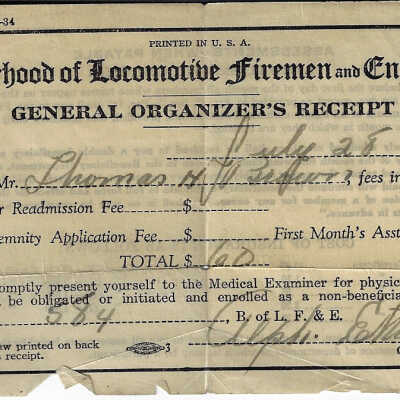 -34
PRINTED IN U. S. A.
rhood of Locomotive Firemen and En
GENERAL ORGANIZER'S RECEIPT
July 28
Mr. Thomas H, fees in
r Readmission Fee $
emnity Application Fee $ First Month's Asst
TOTAL $
omptly present yourself to the Medical Examiner for physic
l be obligated or initiated and enrolled as a non-beneficia
584, B. of L. F. & E.
aw printed on back 3
s receipt.